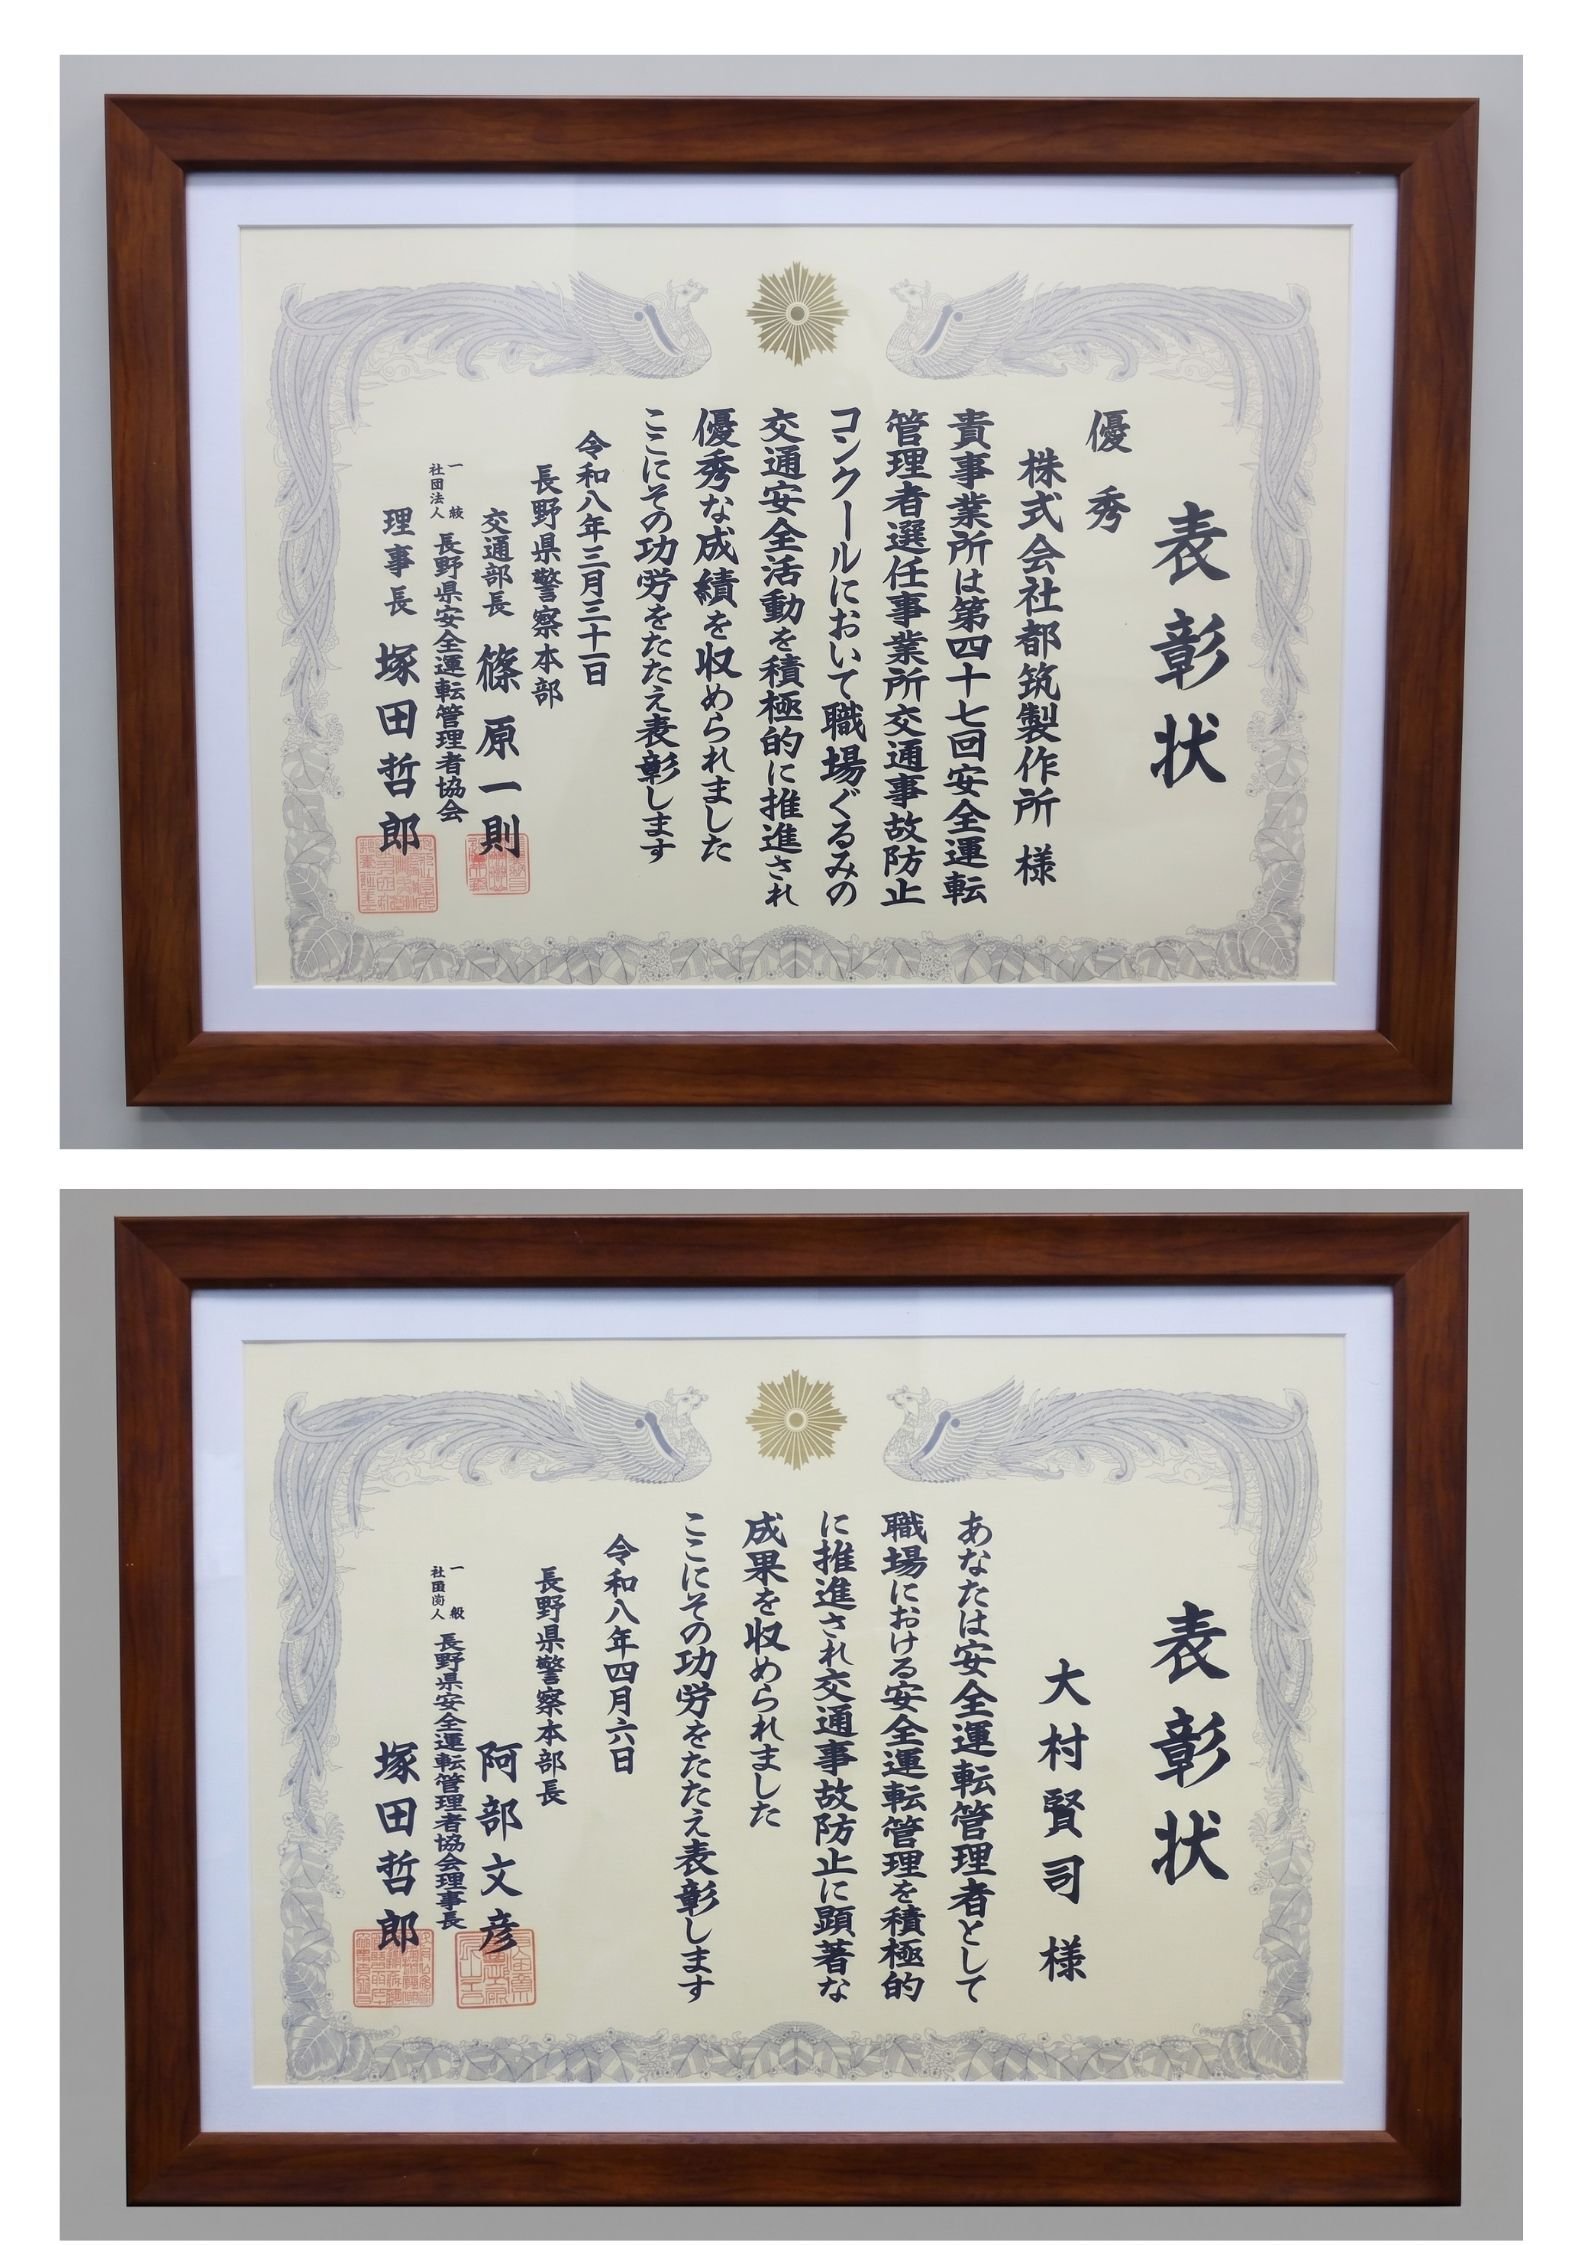 表彰状
優秀
株式会社都筑製作所 様
貴事業所は第四十七回安全運転
管理者選任事業所交通事故防止
コンクールにおいて職場ぐるみの
交通安全活動を積極的に推進され
優秀な成績を収められました
ここにその功労をたたえ表彰します
令和八年三月三十一日
長野県警察本部
交通部長 篠原一則
一般
社団法人 長野県安全運転管理者協会
理事長 塚田哲郎
表彰状
大村賢司 様
あなたは安全運転管理者として
職場における安全運転管理を積極的
に推進され交通事故防止に顕著な
成果を収められました
ここにその功労をたたえ表彰します
令和八年四月六日
長野県警察本部長
阿部文彦
一般
社団法人 長野県安全運転管理者協会理事長
塚田哲郎